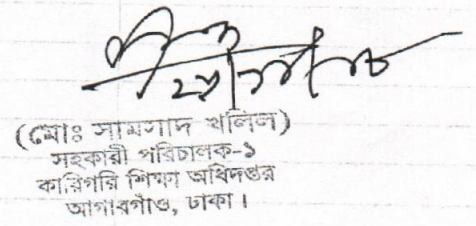 (মোঃ সামসাদ খলিল)
সহকারী পরিচালক-১
কারিগরি শিক্ষা অধিদপ্তর
আগারগাঁও, ঢাকা।